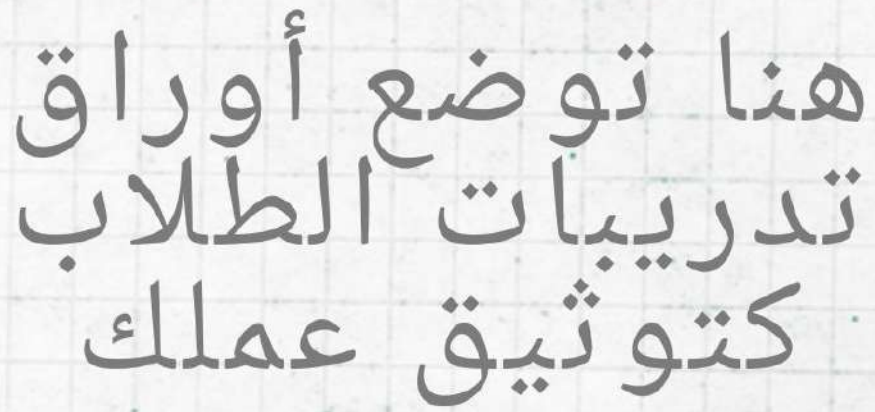 هنا توضع أوراق
تدريبات الطلاب
كتوثيق عملك